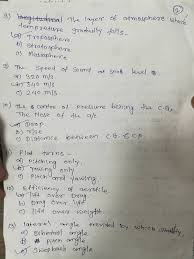 The layer of atmosphere where
temperature gradually falls.
a) Troposphere
b) Stratosphere
c) Mesosphere
The Speed of Sound at level
a) 320 m/s
b) 340 m/s
c) 240 m/s
center of pressure behind the C.G.
The nose of the a/c
a) Drop
b) Rise
c) Distance between C.G. & CP.
Flat turns -
a) Pitching only.
b) Yawing only
c) Pitch and yawing
Efficiency of aerofoil
a) lift over Drag
b) Drag over lift
c) lift over weight
angle provided by which
a) Dihedral angle
b) Pitch angle
c) Sweepback angle